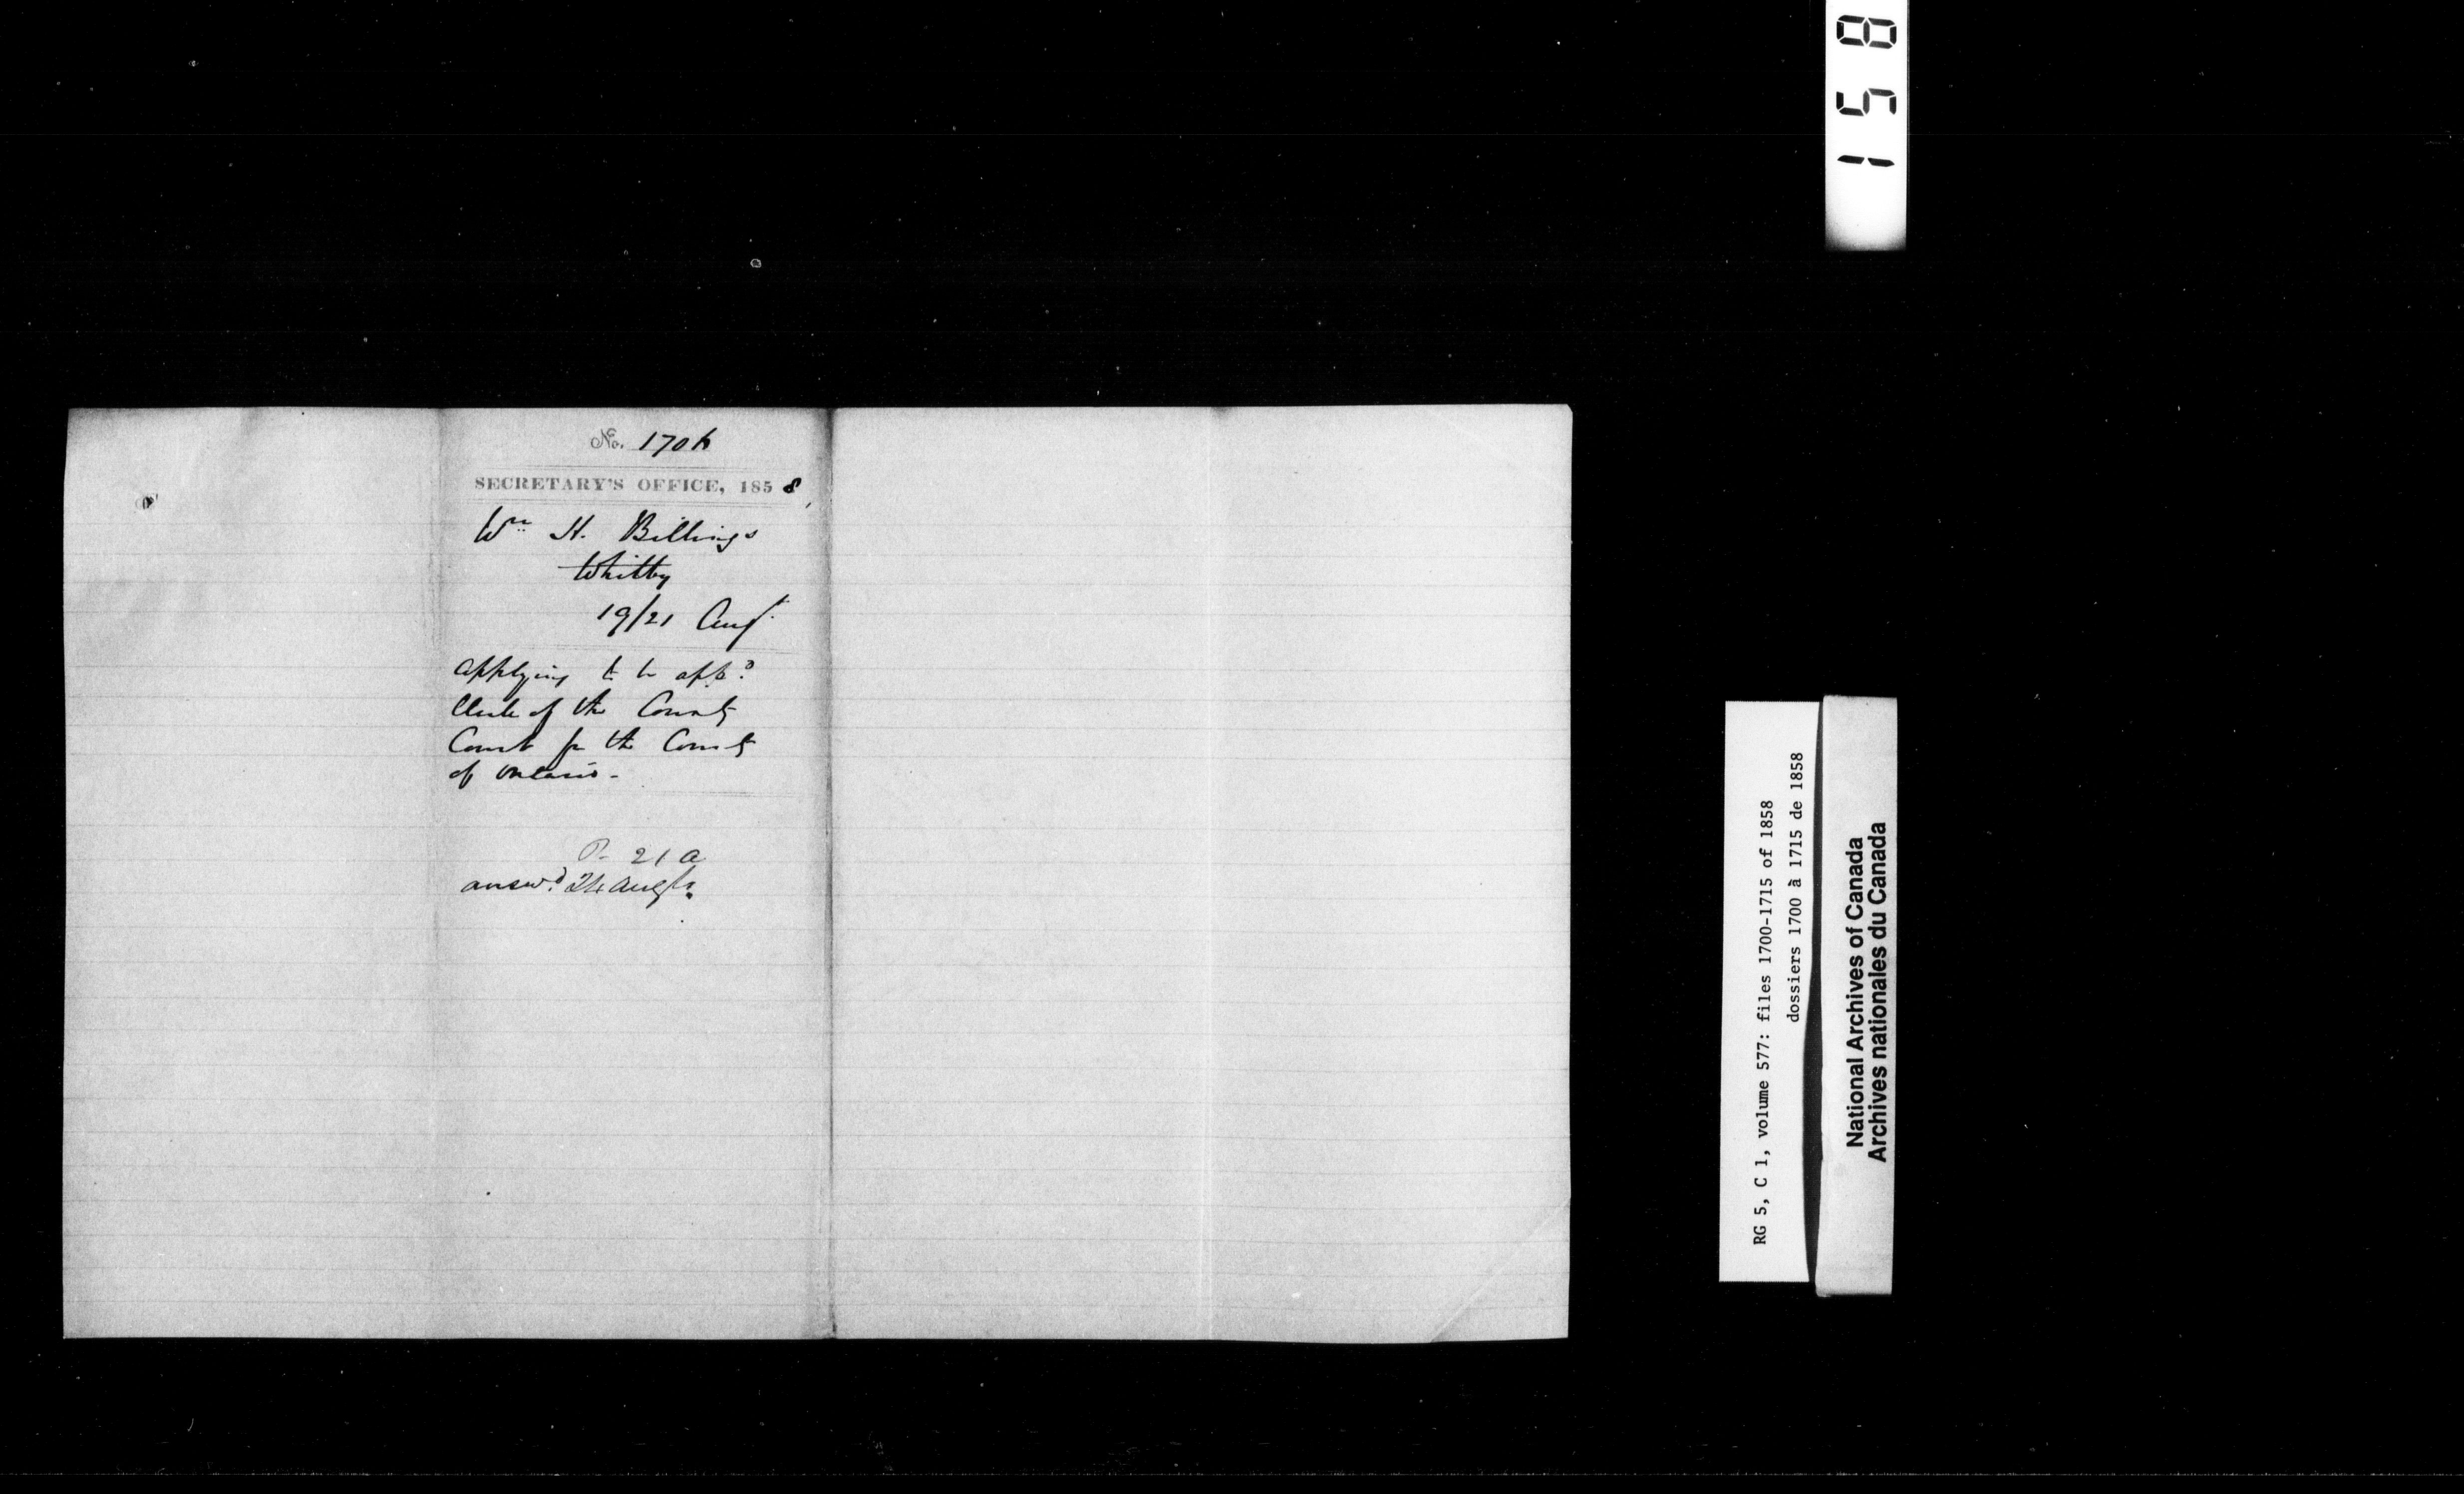 158
No. 1706
SECRETARY'S OFFICE, 1858
Wm H. Billings
Whitby
19/21 Augt.
Applying to be appd.
Clerk of the County
Court for the County
of Ontario -
P. 21 a
answd. 24 Augt.
RG 5, C 1, volume 577: files 1700-1715 of 1858
dossiers 1700 à 1715 de 1858
National Archives of Canada
Archives nationales du Canada